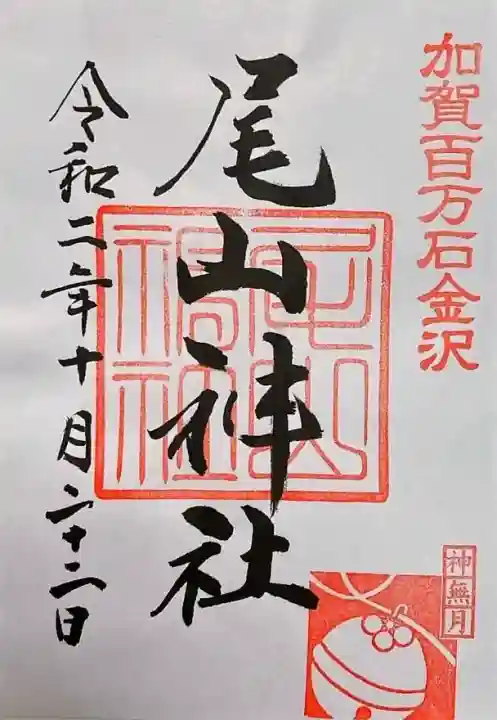 加賀百万石金沢
神無月
尾山神社
令和二年十月二十二日